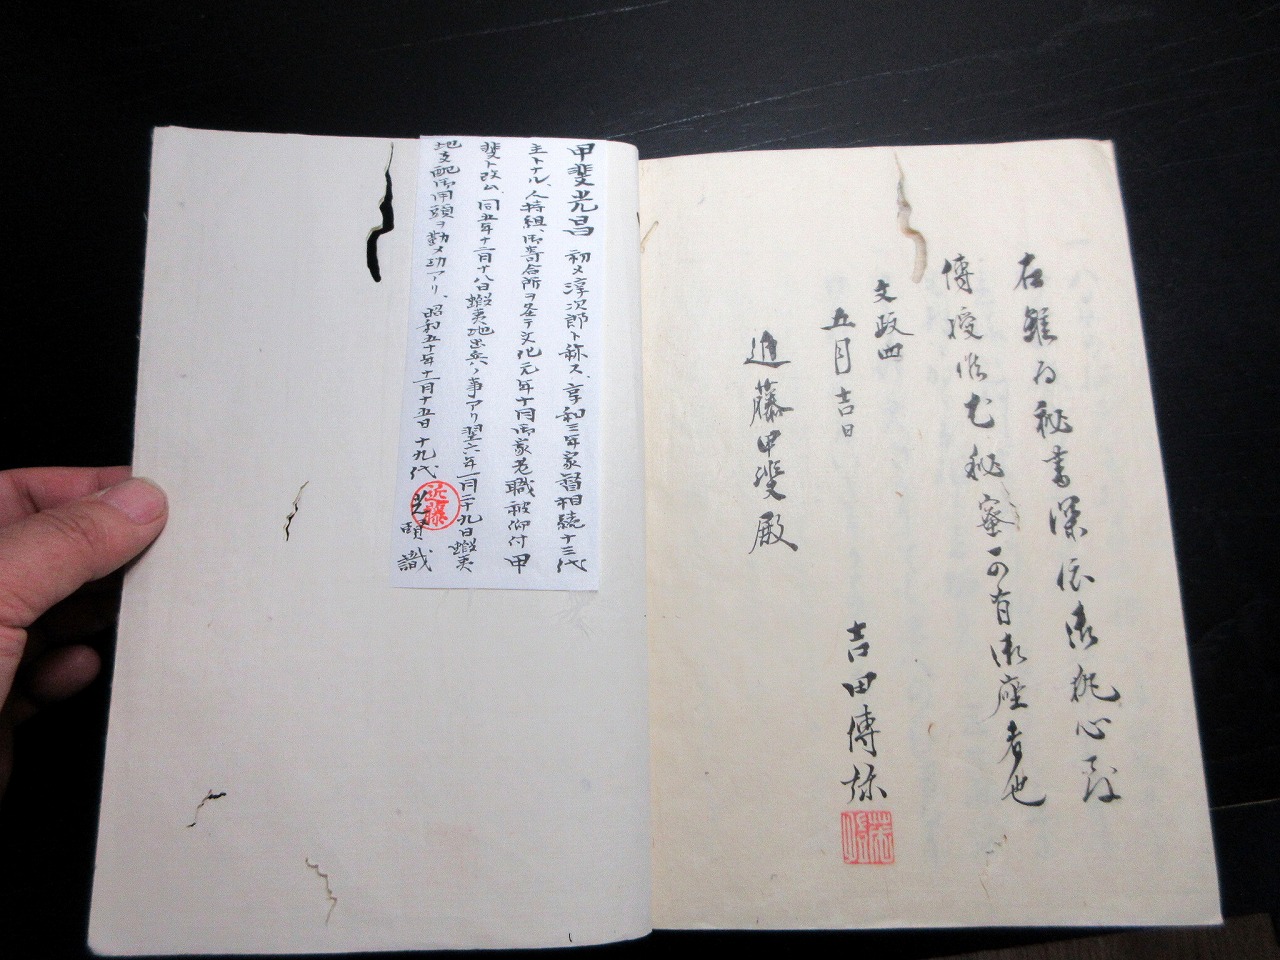 右雖為秘書深依御執心致
傳授候尤秘蜜可有御座者也
文政四
五月吉日
吉田傳弥
進藤甲斐殿
甲斐光昌 初メ淳次郎ト称ス、享和三年家督相続十三代
主トナル、人持組、御寄合所ヲ至テ文化元年十月御家老職被仰付甲
斐ト改ム、同五年十二月十八日蝦夷地出兵ノ事アリ翌六年一月二十九日蝦夷
地支配御用頭ヲ勤メ功アリ、昭和五十年十一月十五日 十九代 光頭 識
近藤